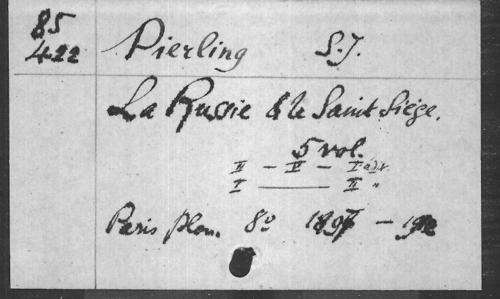 85
422 Pierling S.J.
La Russie & le Saint Siège.
5 vol.
II — V — I édit.
I ——— II "
Paris Plon. 8° 1897 —